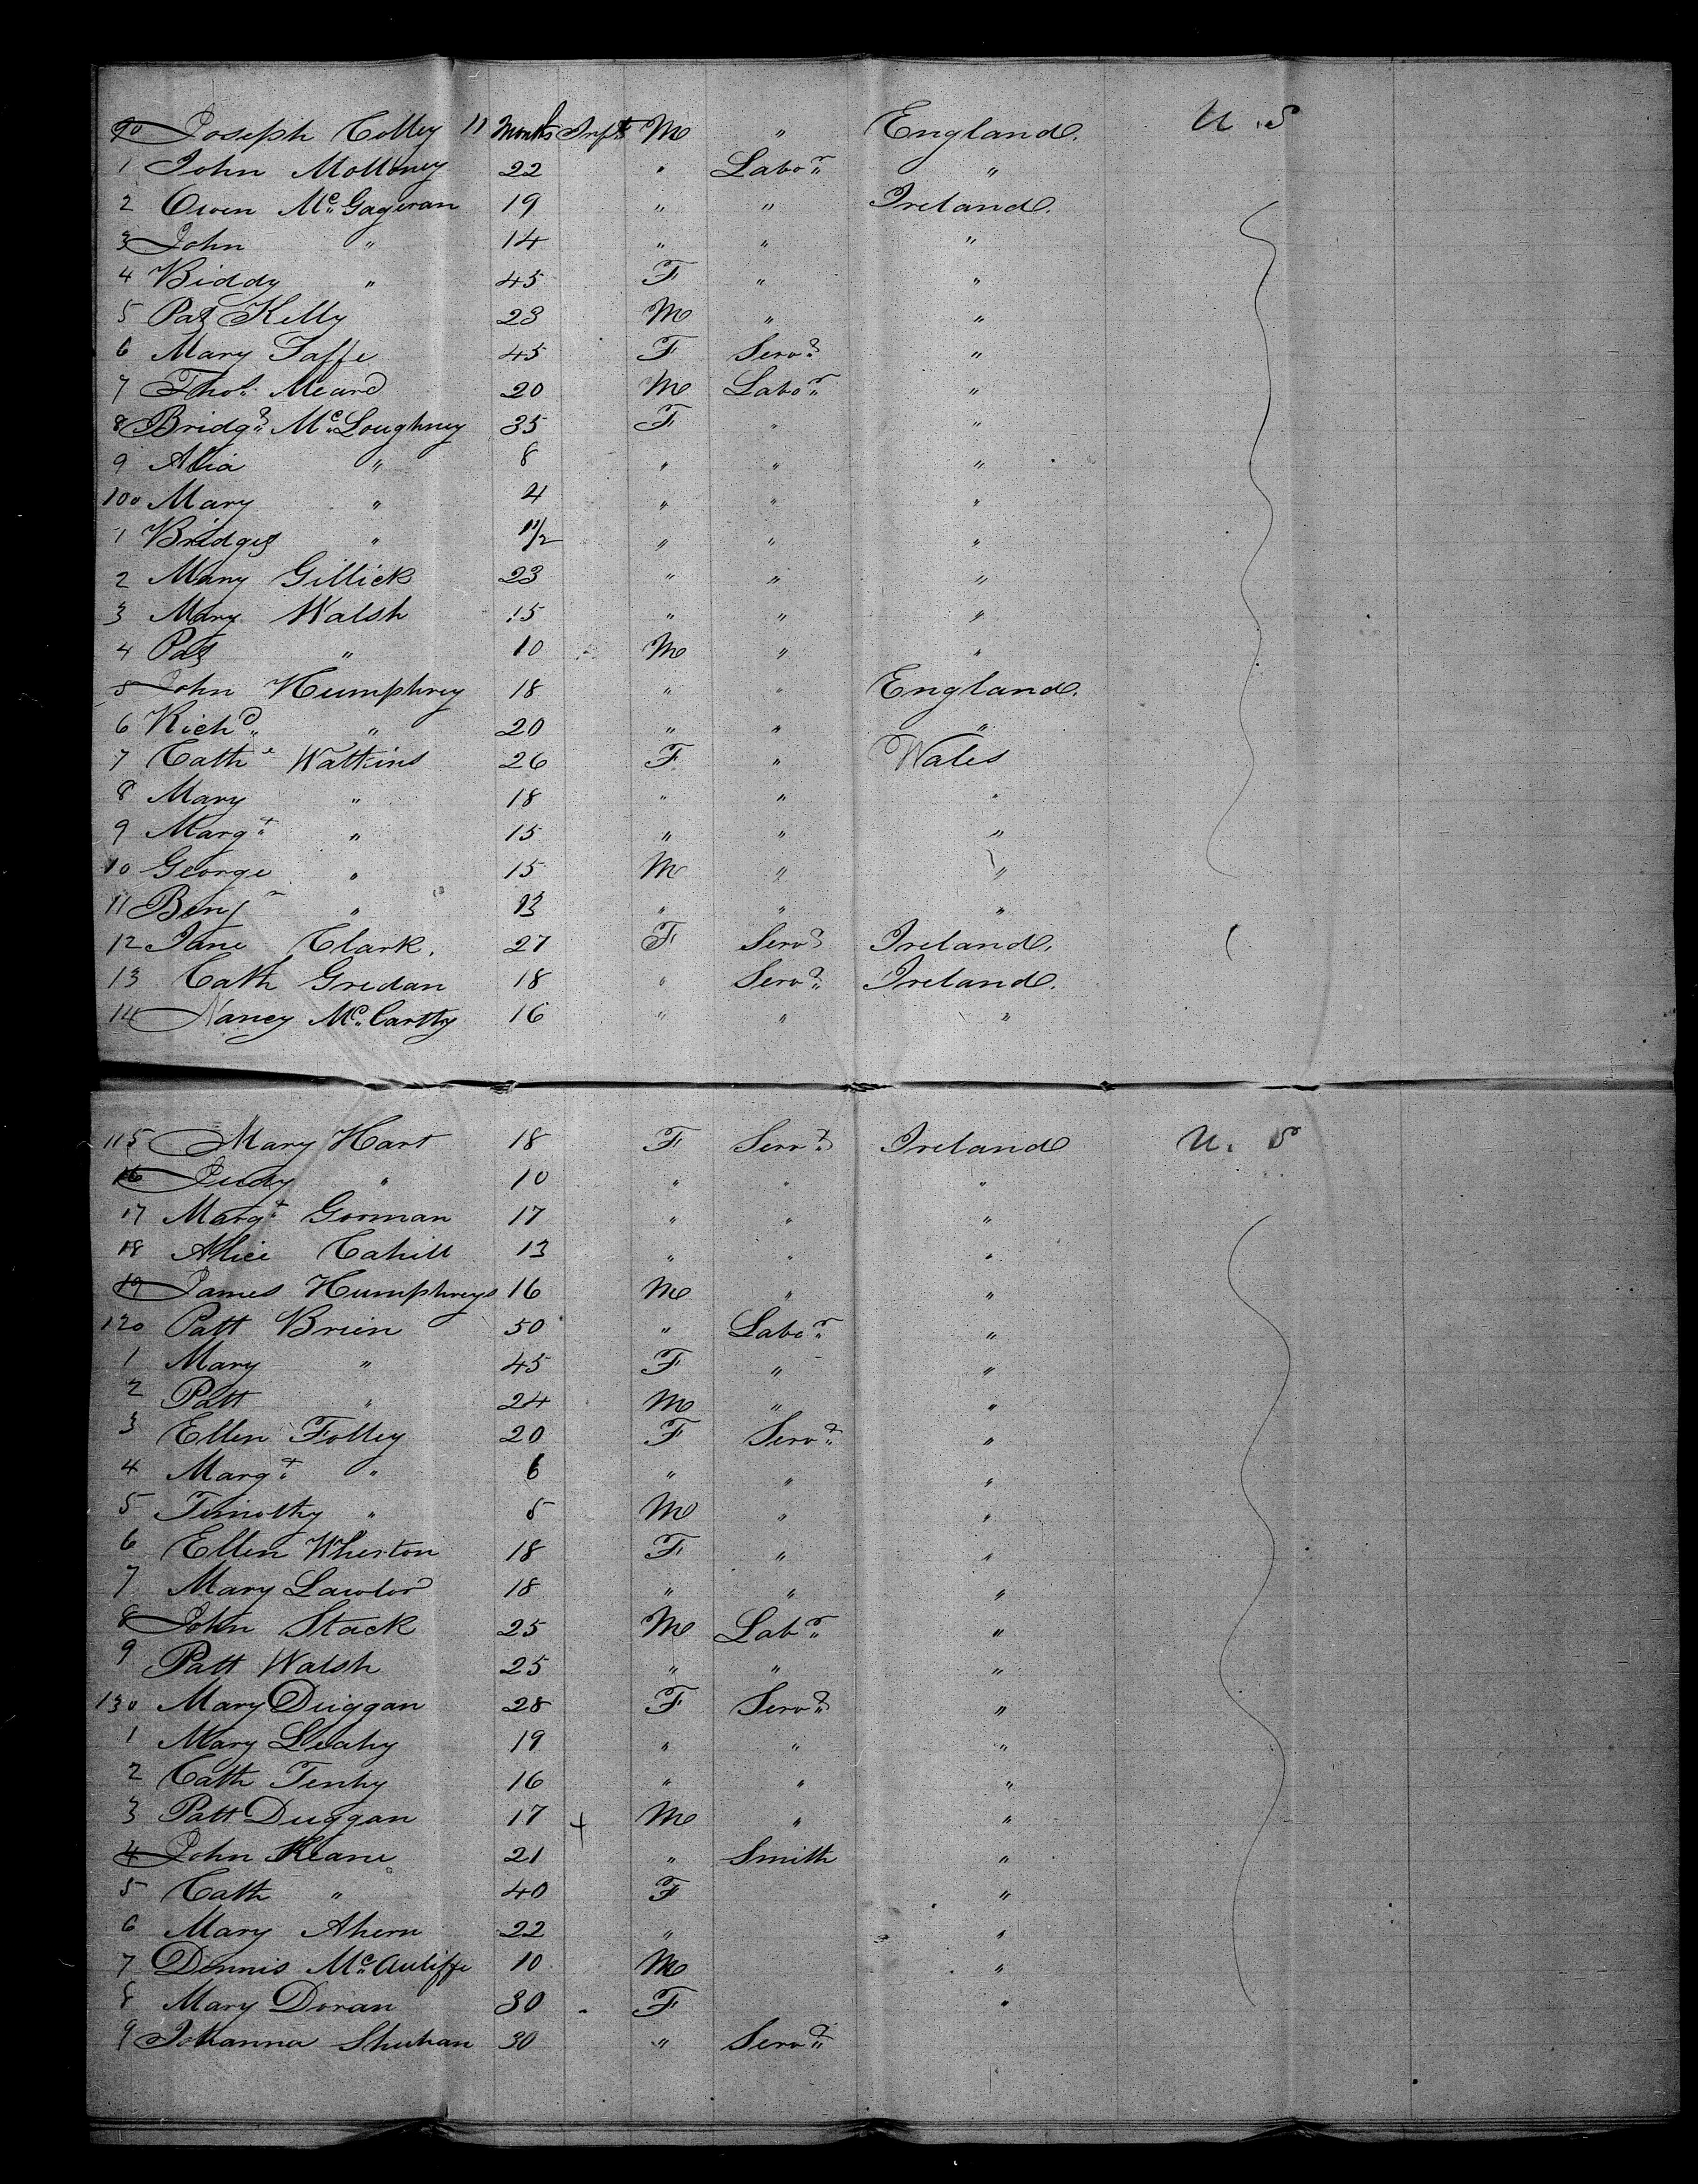 90 Joseph Colley 11 Months Inft M " England. U.S
1 John Molloney 22 " Labor. "
2 Owen Mc.Gageran 19 " " Ireland.
3 John " 14 " " "
4 Biddy " 45 F " "
5 Pat Kelly 23 M " "
6 Mary Taffe 45 F Servt. "
7 Thos. Meard 20 M Labor. "
8 Bridgt. Mc.Loughney 35 F " "
9 Alia " 8 " " "
100 Mary " 4 " " "
1 Bridget " 1 1/2 " " "
2 Mary Gillick 23 " " "
3 Mary Walsh 15 " " "
4 Pat " 10 M " "
5 John Humphrey 18 " " England.
6 Richd. " 20 " " "
7 Cathe Watkins 26 F " Wales
8 Mary " 18 " " "
9 Margt. " 15 " " "
10 George " 15 M " "
11 Benjn " 13 " " "
12 Jane Clark. 27 F Servt Ireland.
13 Cath Gredan 18 " Servt. Ireland.
14 Nancy Mc.Carthy 16 " " "
115 Mary Hart 18 F Servt. Ireland U.S
16 Judy " 10 " " "
17 Margt. Gorman 17 " " "
18 Alice Cahill 13 " " "
19 James Humphreys 16 M " "
120 Patt Brien 50 " Labor. "
1 Mary " 45 F " "
2 Patt " 24 M " "
3 Ellen Folley 20 F Servt. "
4 Margt. " 6 " " "
5 Timothy " 5 M " "
6 Ellen Wherton 18 F " "
7 Mary Lawlor 18 " " "
8 John Stack 25 M Labr. "
9 Patt Walsh 25 " " "
130 Mary Duggan 28 F Servt. "
1 Mary Leahy 19 " " "
2 Cath Tenhy 16 " " "
3 Patt Duggan 17 + M " "
4 John Keane 21 " Smith "
5 Cath " 40 F "
6 Mary Ahern 22 " "
7 Dennis Mc.Auliffe 10 M "
8 Mary Doran 30 F "
9 Johanna Shuhan 30 " Servt.